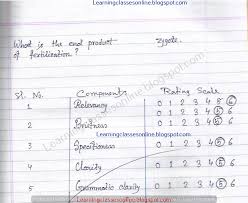 Learningclassesonline.blogspot.com
What is the end product zygote.
of fertilization?
Learningclassesonline.blogspot.com
Sl. No. Components Rating Scale
1 Relevancy 0 1 2 3 4 5 6
2 Briefness 0 1 2 3 4 5 6
Learningclassesonline.blogspot.com
3 Specificness 0 1 2 3 4 5 6
4 Clarity 0 1 2 3 4 5 6
5 Grammatic clarity 0 1 2 3 4 5 6
Learningclassesonline.blogspot.com